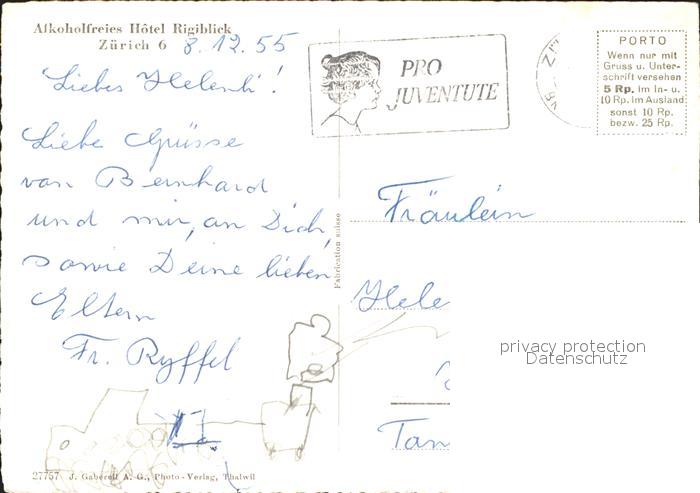 Alkoholfreies Hôtel Rigiblick
Zürich 6 8.12.55
Liebes Helenli!
Liebe Grüsse
von Bernhard
und mir, an Dich,
sowie Deine lieben
Eltern
Fr. Ryffel
27757 J. Gaberell A.-G., Photo-Verlag, Thalwil
Fabrication suisse
PRO
JUVENTUTE
PORTO
Wenn nur mit
Gruss u. Unter-
schrift versehen
5 Rp. im In- u.
10 Rp. im Ausland
sonst 10 Rp.
bezw. 25 Rp.
Fräulein
Hele
Tan
privacy protection
Datenschutz